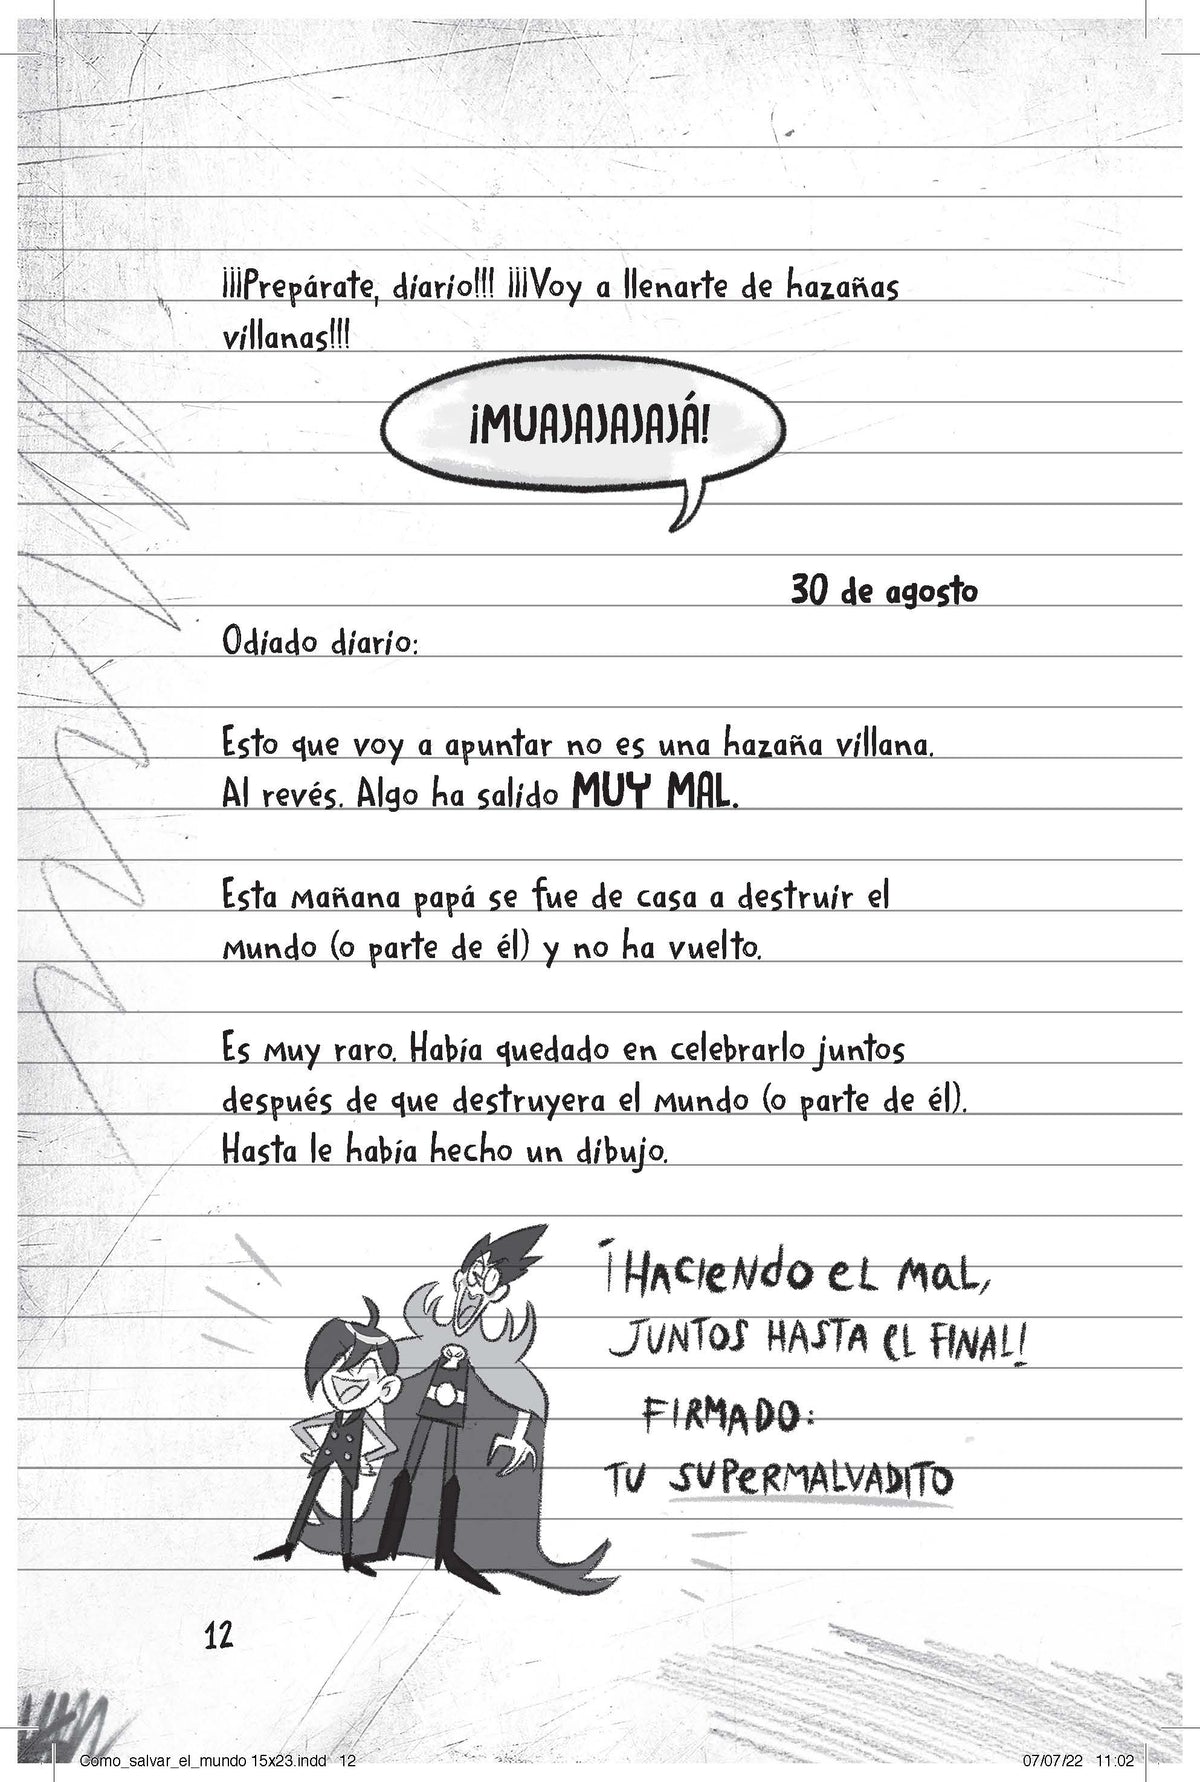 ¡¡¡Prepárate, diario!!! ¡¡¡Voy a llenarte de hazañas
villanas!!!
¡MUAJAJAJAJÁ!
30 de agosto
Odiado diario:
Esto que voy a apuntar no es una hazaña villana.
Al revés. Algo ha salido MUY MAL.
Esta mañana papá se fue de casa a destruir el
mundo (o parte de él) y no ha vuelto.
Es muy raro. Había quedado en celebrarlo juntos
después de que destruyera el mundo (o parte de él).
Hasta le había hecho un dibujo.
¡HACIENDO EL MAL,
JUNTOS HASTA EL FINAL!
FIRMADO:
TU SUPERMALVADITO
12
Como_salvar_el_mundo 15x23.indd 12
07/07/22 11:02